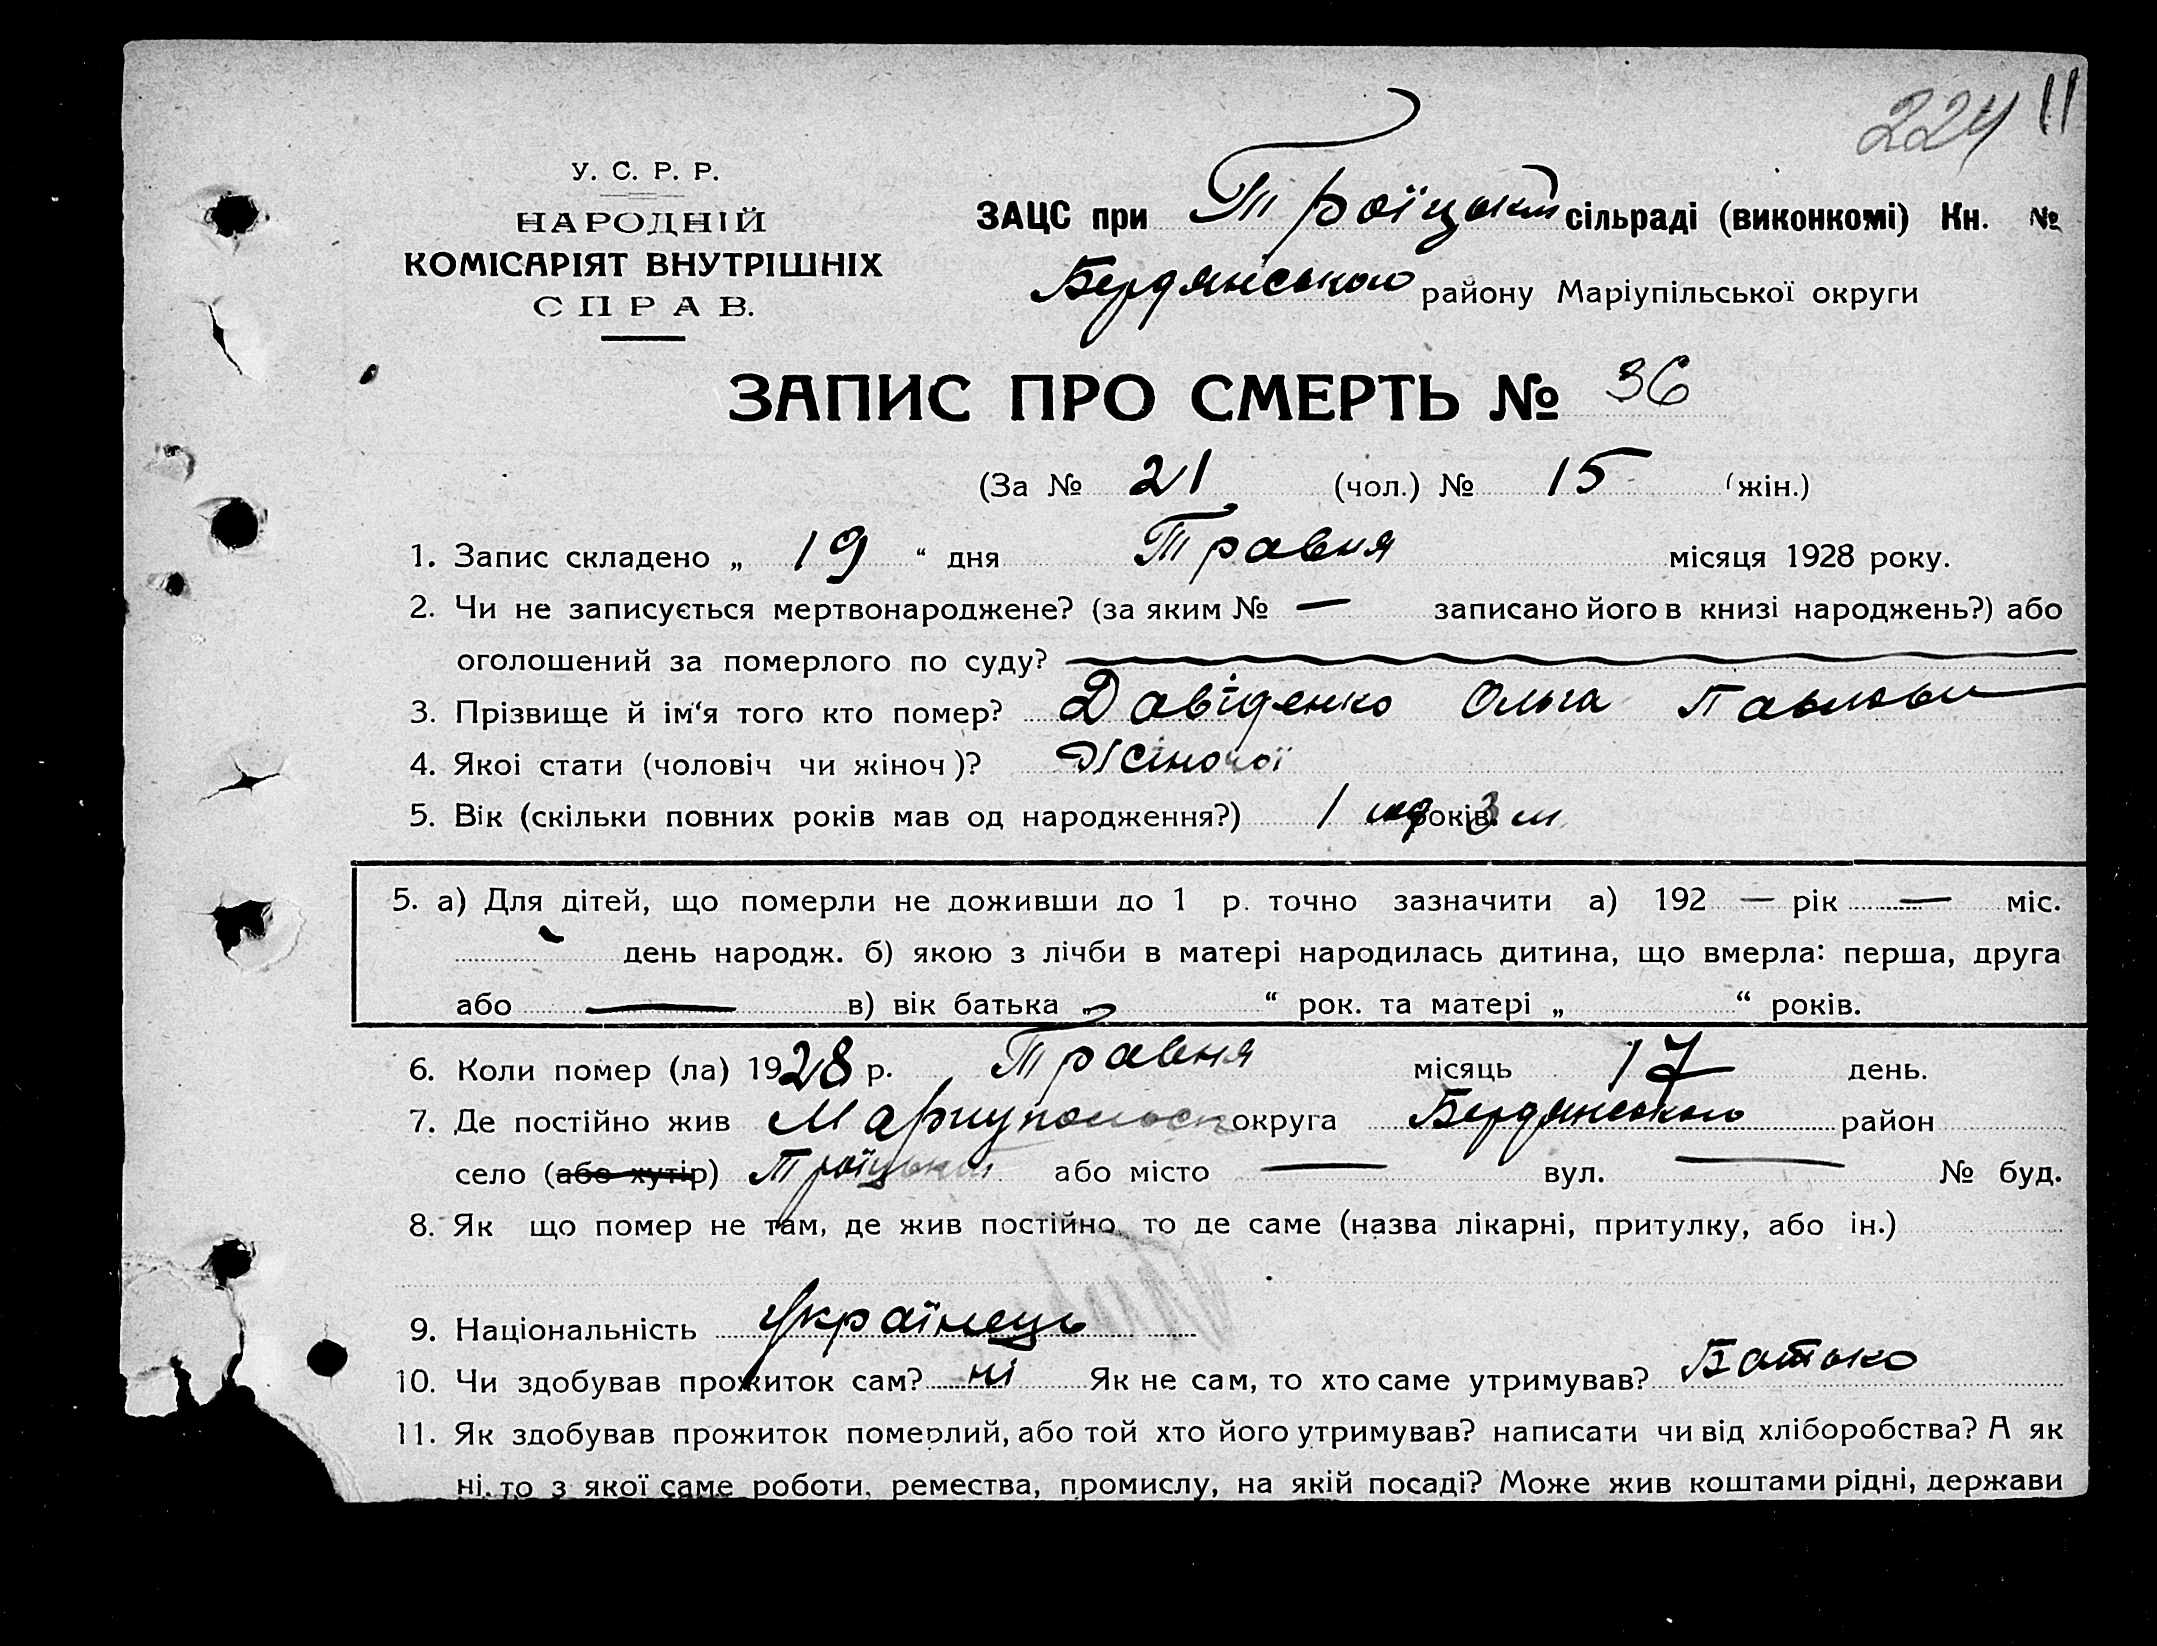 224 11
У. С. Р. Р.
НАРОДНІЙ
КОМІСАРІЯТ ВНУТРІШНІХ
СПРАВ.
ЗАЦС при Троїцькій сільраді (виконкомі) Кн. №
Бердянського району Маріупільської округи
ЗАПИС ПРО СМЕРТЬ № 36
(За № 21 (чол.) № 15 (жін.)
1. Запис складено „ 19 “ дня Травня місяця 1928 року.
2. Чи не записується мертвонароджене? (за яким № — записано його в книзі народжень?) або
оголошений за померлого по суду?
3. Прізвище й ім‘я того кто помер? Давіденко Ольга Павлови
4. Якоі стати (чоловіч чи жіноч)? Жіночої
5. Вік (скільки повних років мав од народження?) 1 год років. 3 м
5. а) Для дітей, що померли не доживши до 1 р. точно зазначити а) 192 — рік — міс.
день народж. б) якою з лічби в матері народилась дитина, що вмерла: перша, друга
або — в) вік батька „ “ рок. та матері „ “ років.
6. Коли помер (ла) 1928 р. Травня місяць 17 день.
7. Де постійно жив Мариупольск округа Бердянського район
село (або хутір) Троїцький або місто — вул. — № буд.
8. Як що помер не там, де жив постійно, то де саме (назва лікарні, притулку, або ін.)
9. Національність Українець
10. Чи здобував прожиток сам? ні Як не сам, то хто саме утримував? Батько
11. Як здобував прожиток померлий, або той хто його утримував? написати чи від хліборобства? А як
ні, то з якої саме роботи, ремества, промислу, на якій посаді? Може жив коштами рідні, держави